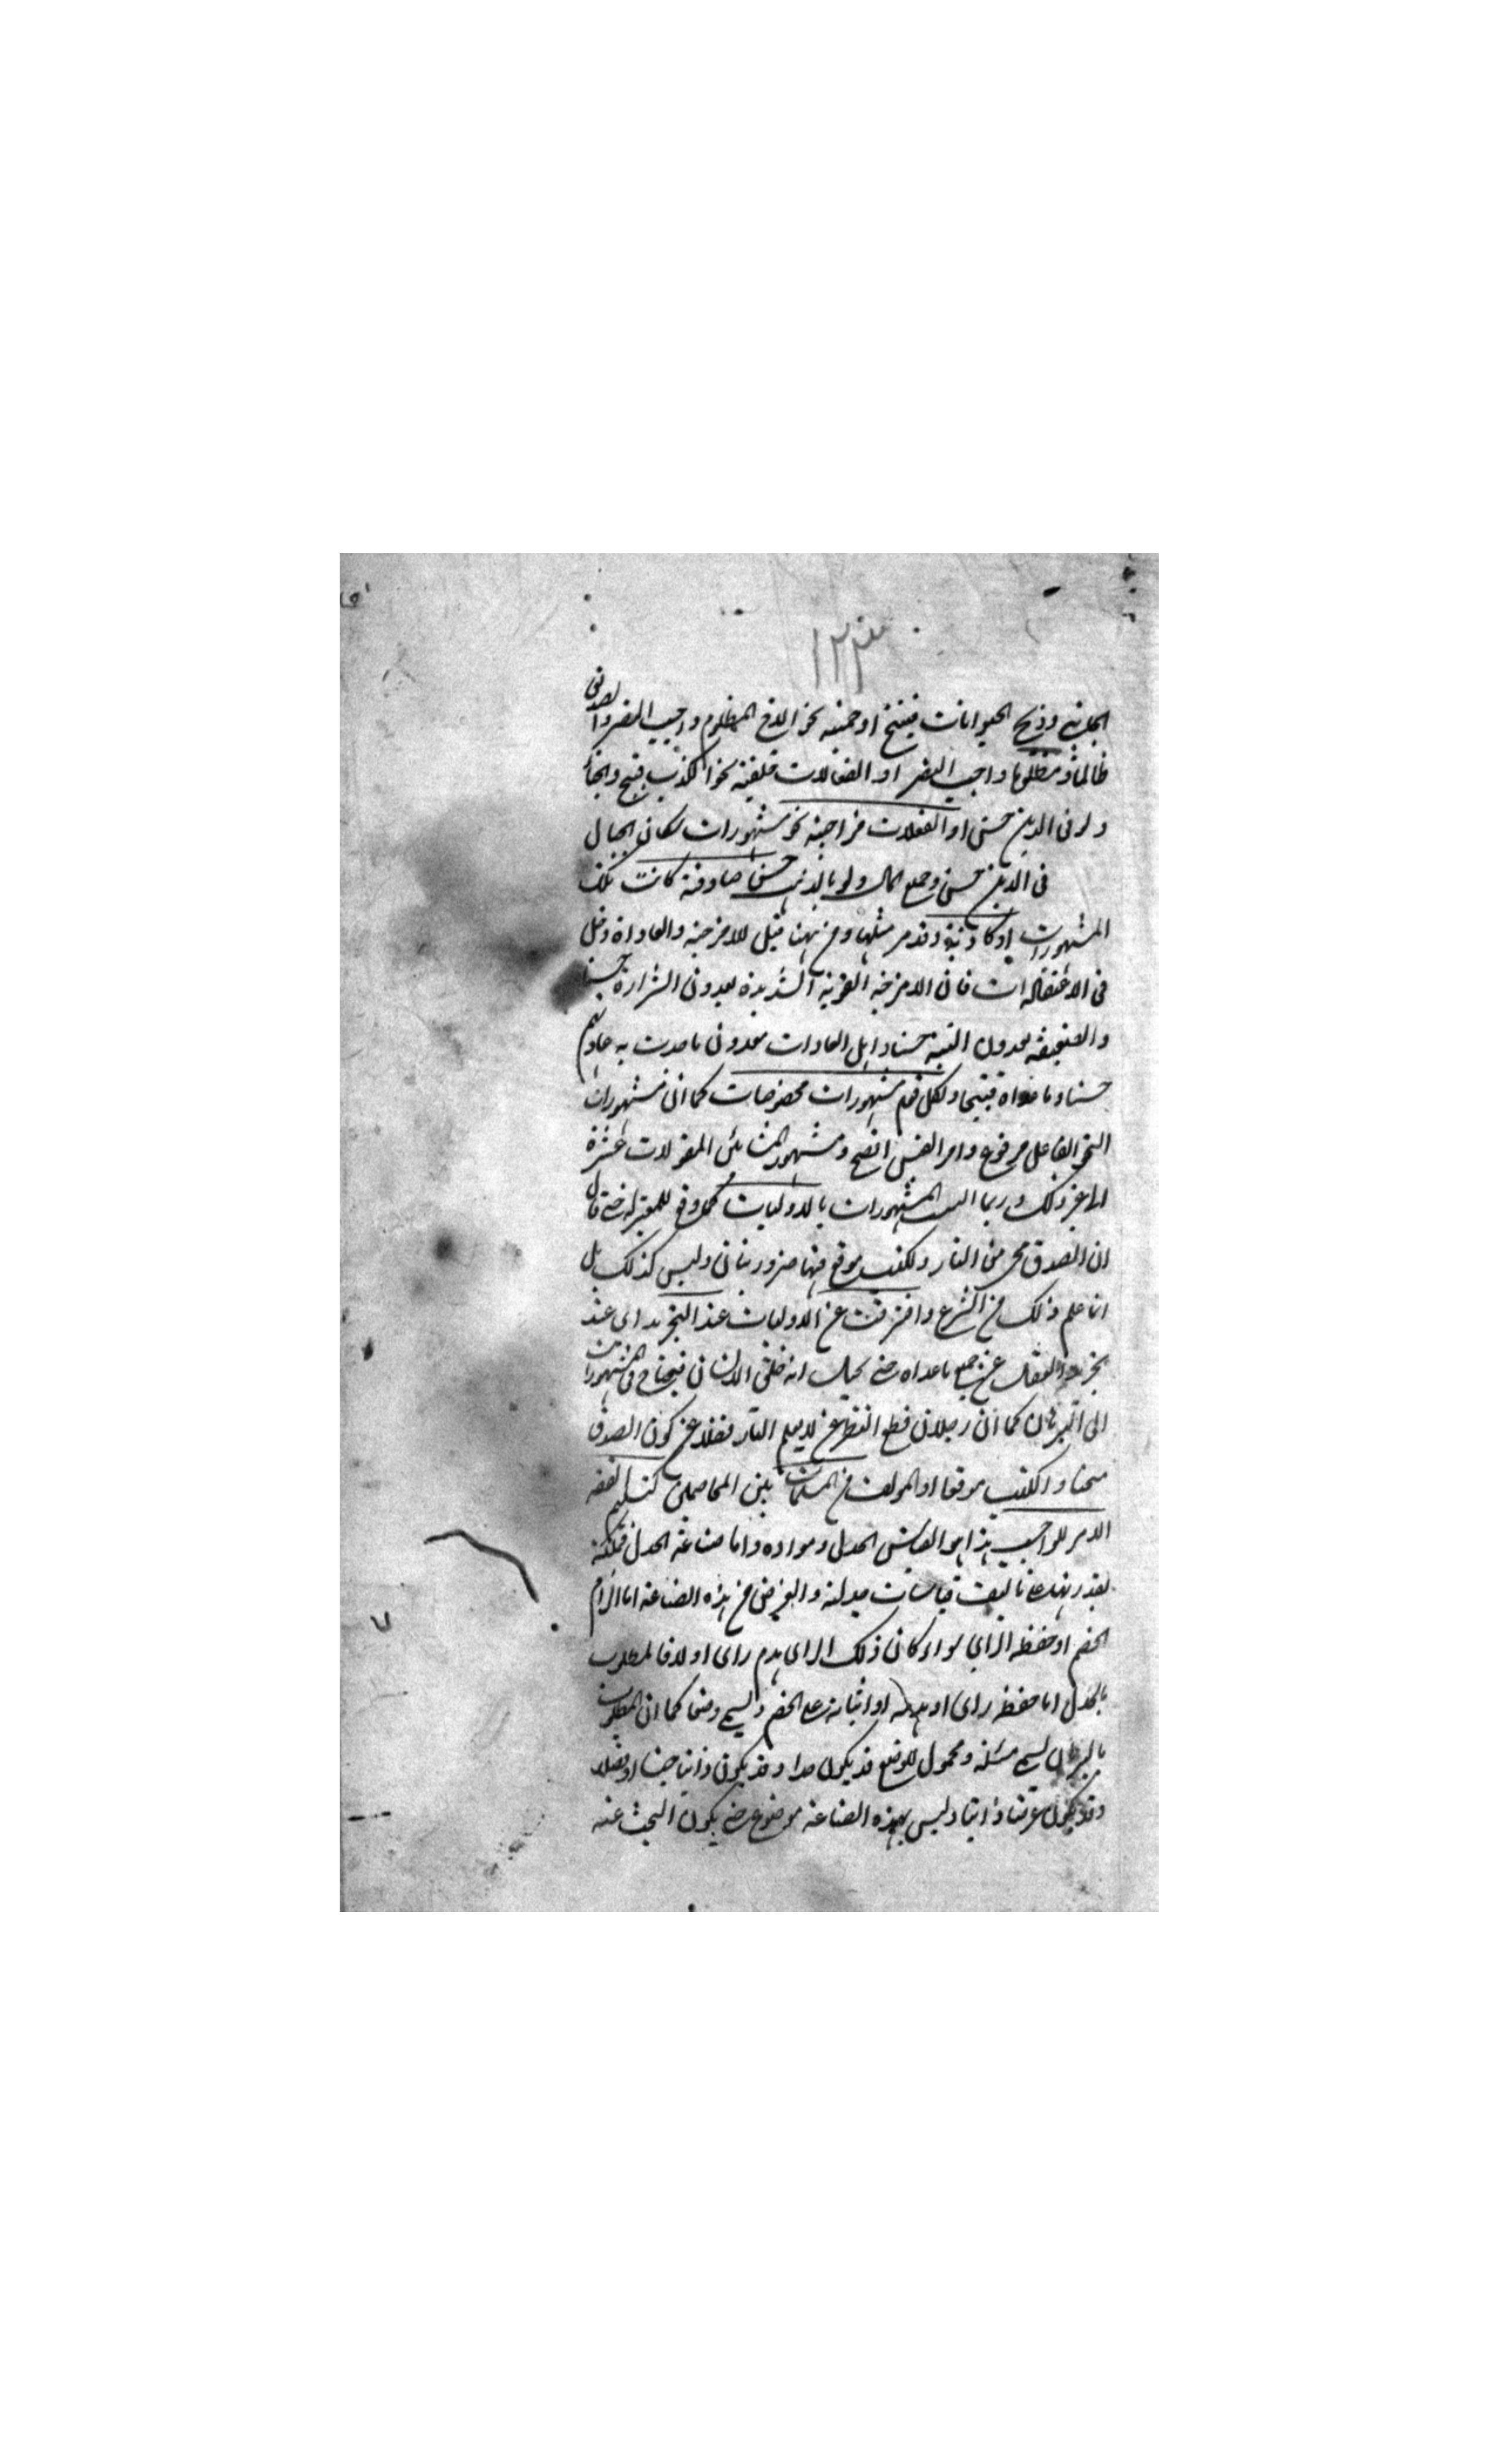 ١٢٣
وذبح الحيوانات قبيح او حمية نحو الاخ المظلوم واجب النصر والصدق
ظالما ومظلوما واجب النصر او انفعالات خلقية نحو الكذب قبيح
الدين حسن او انفعالات مزاجية نحو مشهورات سكان الجبال
فى الدين حسن وجمع المال ولو بالذنب حسن صادقة كانت تلك
المشهورات او كاذبة وقد مر مثلها ومن ههنا قيل للامزجة والعادات دخل
فى الاعتقادات فان الامزجة القوية الشديدة يعدون الشرارة حسنا
والضعيفة يعدون حسنا واهل العادات يعدون ما جرت به عادتهم
حسنا وما عداه قبيحا ولكل قوم مشهورات مخصوصات كما ان مشهورات
النحو الفاعل مرفوع وامر النفس انصح ومشهورات المشائى المقولات عشرة
الى غير ذلك وربما التبست المشهورات بالاوليات كما وقع للمعتزلة حتى قال
ان الصدق منجى من النار والكذب موقع فيها ضروريتان وليس كذلك بل
انما علم ذلك من الشرع وافترقت عن الاوليات عند التجريد اى عند
تجريد العقل عن جميع ما عداه حتى كانه خلق الان فيحتاج فى المشهورات
الى البرهان كما ان رجلا لو قطع النظر عن لا يعلم النار فضلا عن كون الصدق
منجيا والكذب موقعا او المؤلف من المسلمات بين المخاصمين كتسليم الفقه
الامر للواجب هذا هو القياس الجدل ومواده واما صناعة الجدل فملكة
يقدر بها على تاليف قياسات جدلية والغرض من هذه الصناعة اما الزام
الخصم او حفظ الراى سواء كان ذلك الراى هدم راى او لا فالمطلوب
بالجدل اما حفظ راى او هدمه او اثباته على الخصم ويسمى وضعا كما ان المطلوب
بالبرهان يسمى مسئلة ومحمول الوضع قد يكون حدا وقد يكون ذاتيا جنسا او فصلا
وقد يكون عرضا ذاتيا وليس لهذه الصناعة موضوع حتى يكون البحث عنه